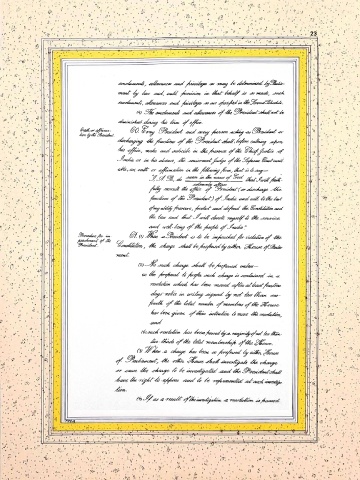 23
emoluments, allowances and privileges as may be determined by Parlia-
ment by law and, until provision in that behalf is so made, such
emoluments, allowances and privileges as are specified in the Second Schedule.
(4) The emoluments and allowances of the President shall not be
diminished during his term of office.
Oath or affirma-
tion by the President.
60. Every President and every person acting as President or
discharging the functions of the President shall, before entering upon
his office, make and subscribe in the presence of the Chief Justice of
India or, in his absence, the seniormost Judge of the Supreme Court avail-
able, an oath or affirmation in the following form, that is to say—
"I, A.B., do swear in the name of God that I will faith-
solemnly affirm
fully execute the office of President (or discharge the
functions of the President) of India and will to the best
of my ability preserve, protect and defend the Constitution and
the law and that I will devote myself to the service
and well-being of the people of India."
Procedure for im-
peachment of the
President.
61. (1) When a President is to be impeached for violation of the
Constitution, the charge shall be preferred by either House of Parlia-
ment.
(2) No such charge shall be preferred unless—
(a) the proposal to prefer such charge is contained in a
resolution which has been moved after at least fourteen
days' notice in writing signed by not less than one-
fourth of the total number of members of the House
has been given of their intention to move the resolution,
and
(b) such resolution has been passed by a majority of not less than
two-thirds of the total membership of the House.
(3) When a charge has been so preferred by either House
of Parliament, the other House shall investigate the charge
or cause the charge to be investigated and the President shall
have the right to appear and to be represented at such investiga-
tion.
(4) If as a result of the investigation a resolution is passed